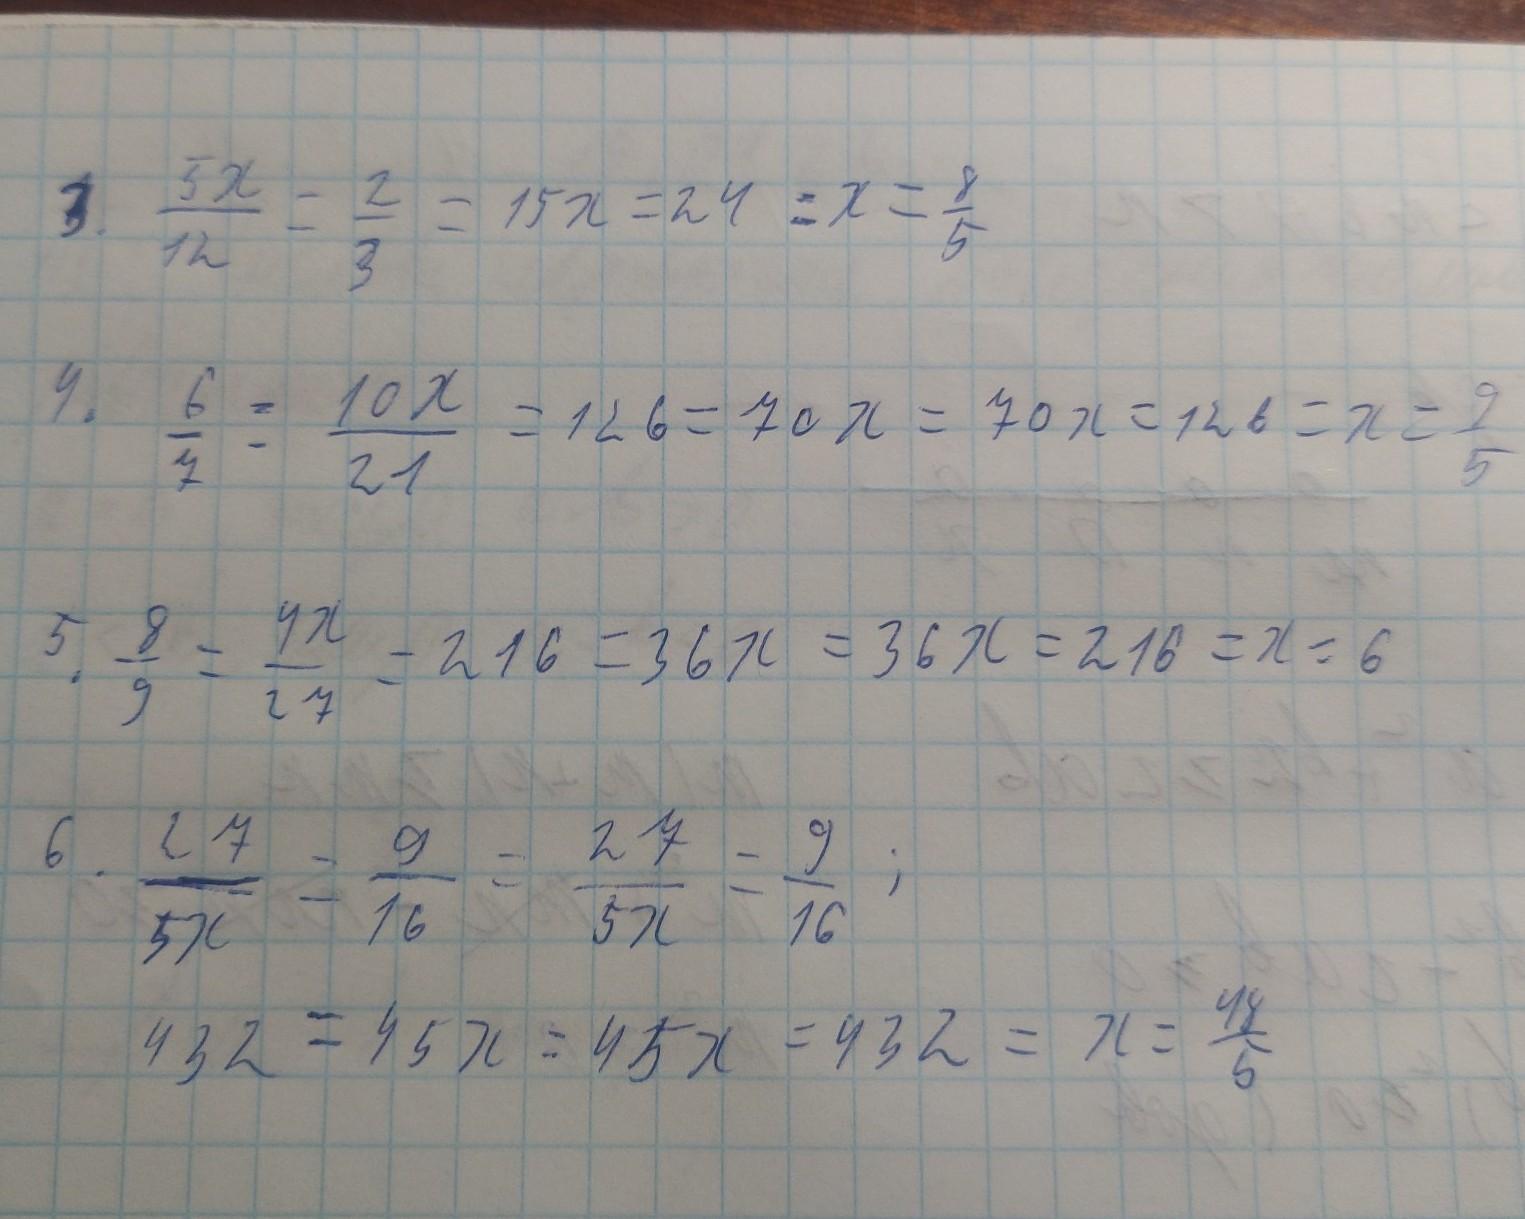 3. 5x/12 = 2/3 = 15x = 24 = x = 8/5
4. 6/7 = 10x/21 = 126 = 70x = 70x = 126 = x = 9/5
5. 8/9 = 4x/27 = 216 = 36x = 36x = 216 = x = 6
6. 27/5x = 9/16 = 27/5x = 9/16 ;
432 = 45x = 45x = 432 = x = 48/5